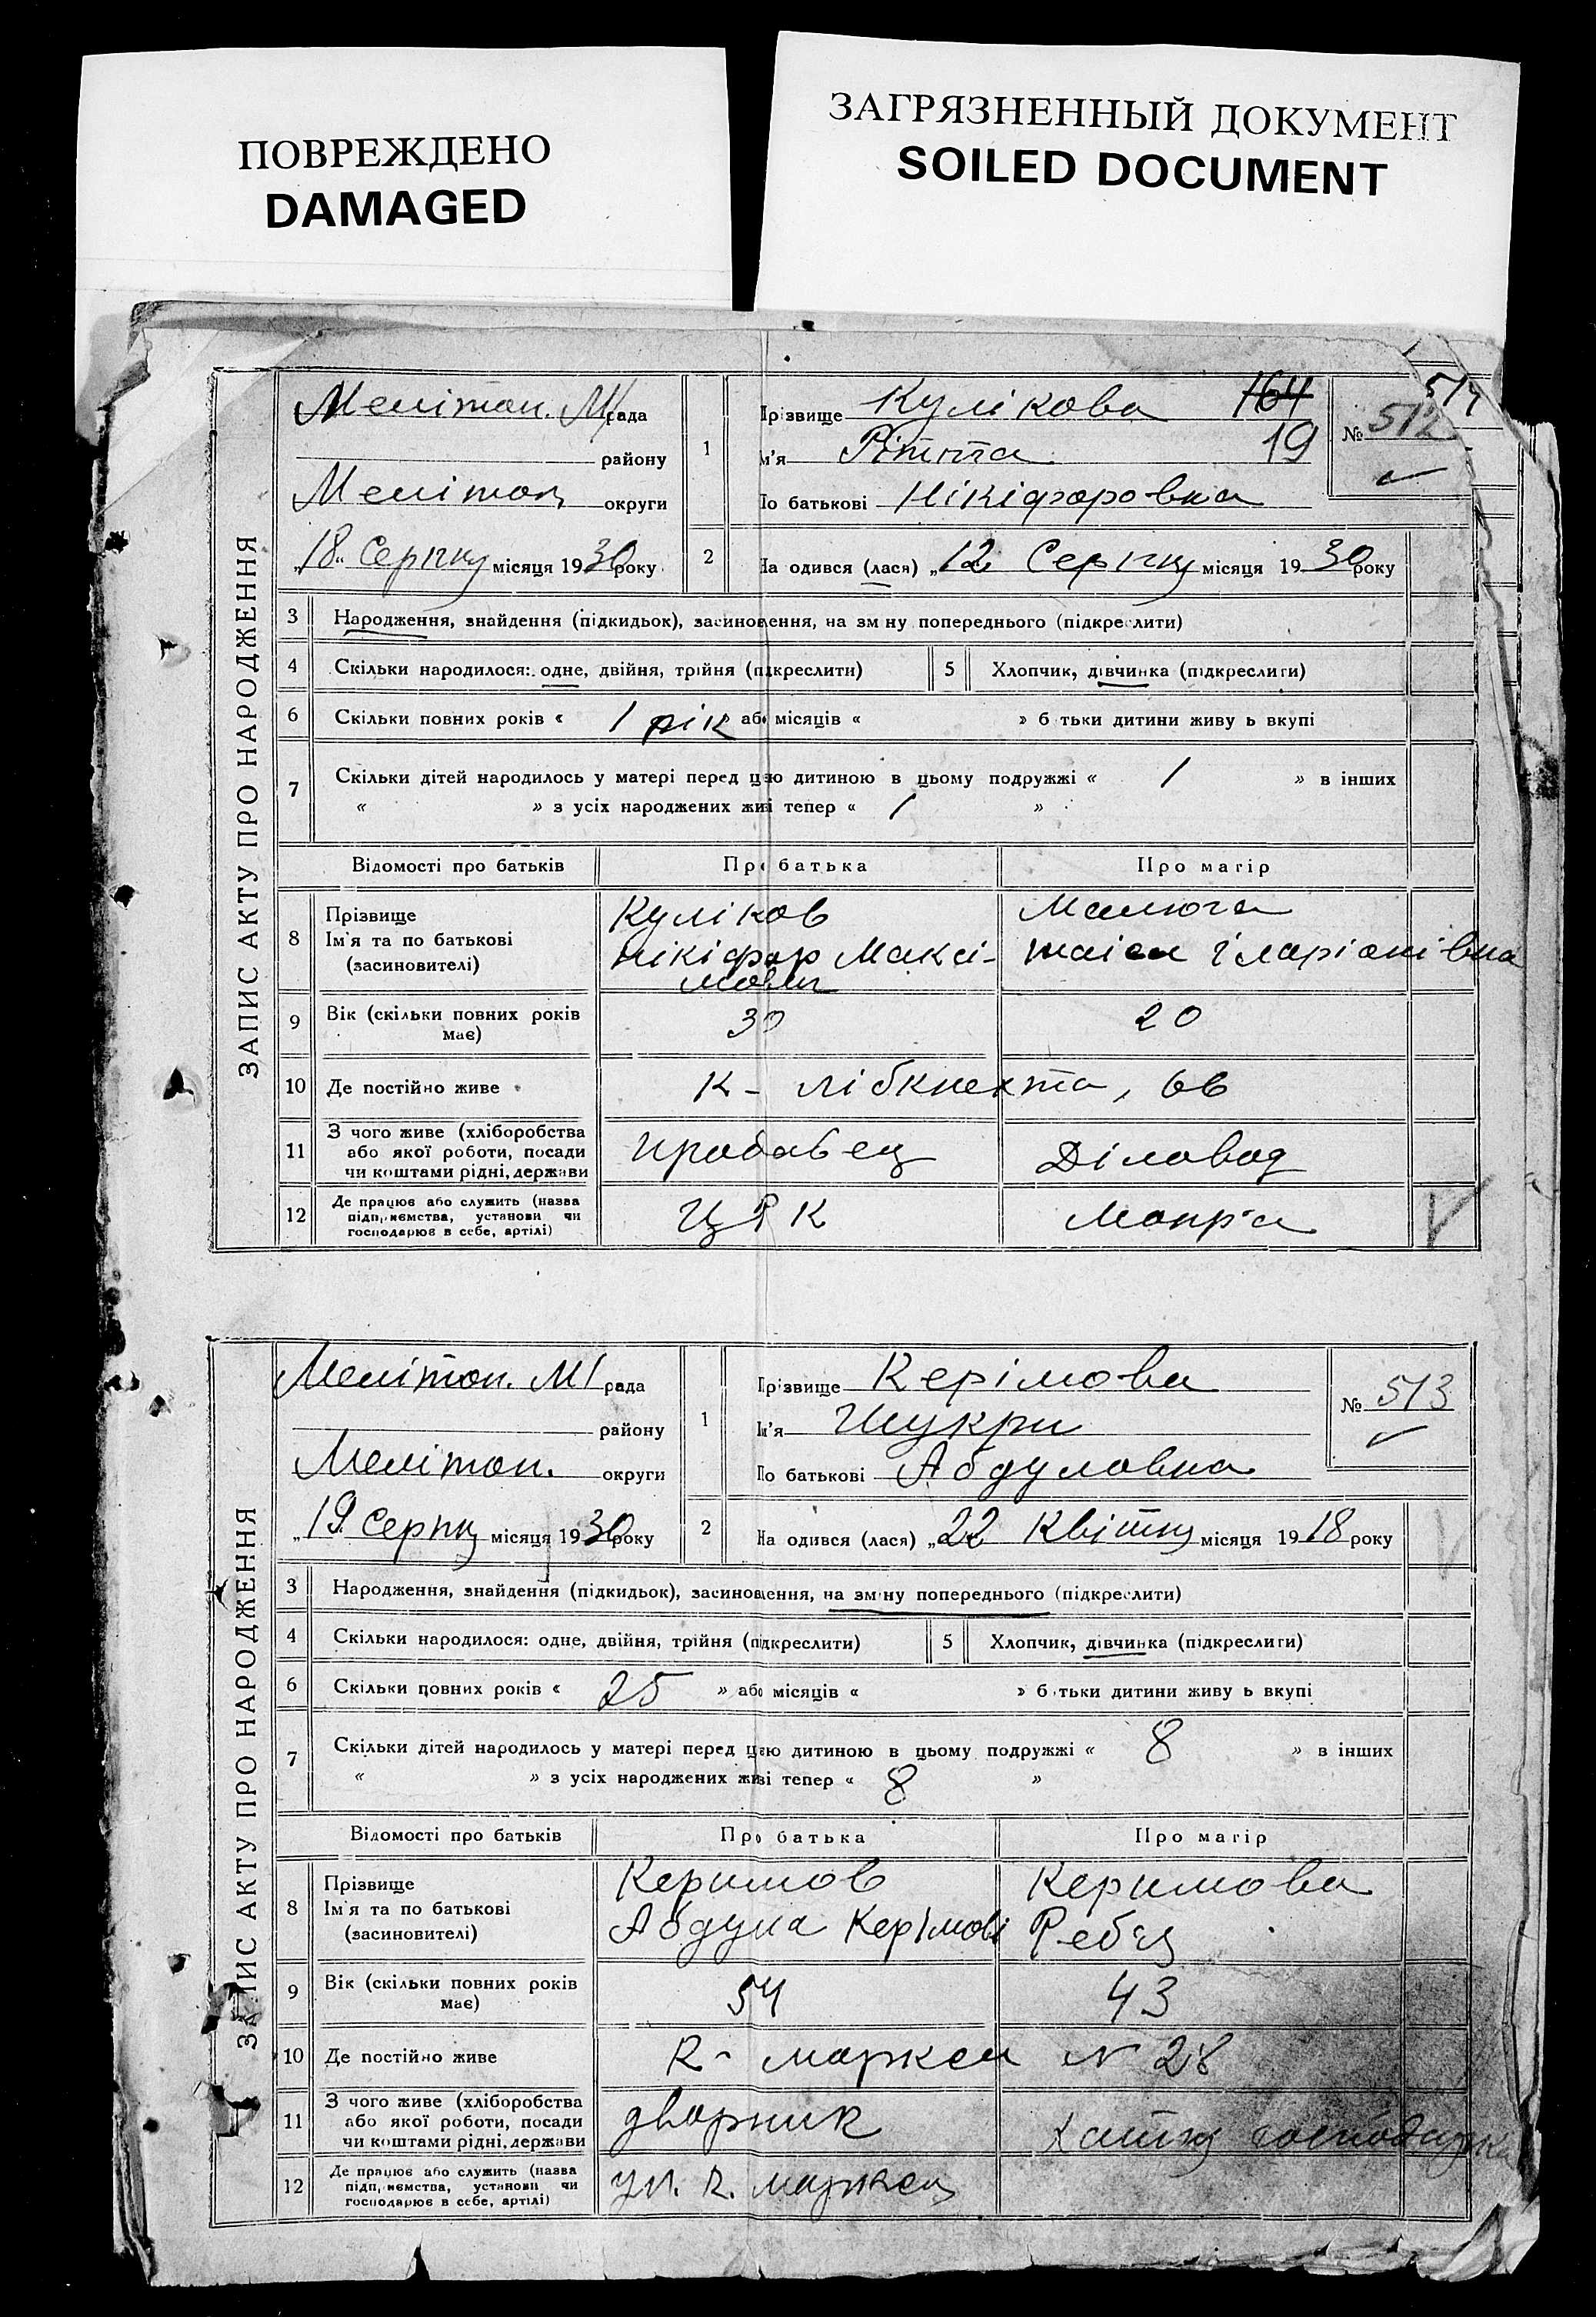 ПОВРЕЖДЕНО
DAMAGED
ЗАГРЯЗНЕННЫЙ ДОКУМЕНТ
SOILED DOCUMENT
ЗАПИС АКТУ ПРО НАРОДЖЕННЯ
Мелітоп. М/рада
району
Мелітоп. округи
„18" Серпня місяця 1930 року
1 Прізвище Кулікова 164
Ім'я Рімма 19
По батькові Нікіфоровна
№ 512
514
2 На одився (лася) „12 Серпня місяця 1930 року
3 Народження, знайдення (підкидьок), засиновлення, на зм ну попереднього (підкреслити)
4 Скільки народилося: одне, двійня, трійня (підкреслити) 5 Хлопчик, дівчинка (підкреслити)
6 Скільки повних років « 1 рік або місяців « » б тьки дитини живу ь вкупі
7 Скільки дітей народилось у матері перед цею дитиною в цьому подружжі « 1 » в інших
« » з усіх народжених живі тепер « 1 »
Відомості про батьків Про батька Про матір
8 Прізвище
Ім'я та по батькові
(засиновителі)
Куліков
Нікіфор Максі-
мович
Малюга
Таіса Іларіонівна
9 Вік (скільки повних років має) 30 20
10 Де постійно живе К- Лібкнехта, 66
11 З чого живе (хліборобства
або якої роботи, посади
чи коштами рідні, держави
продавец Діловод
12 Де працює або служить (назва
підприємства, установи чи
господарює в себе, артілі)
ЦРК Мопр'а
ЗАПИС АКТУ ПРО НАРОДЖЕННЯ
Мелітоп. М/рада
району
Мелітоп. округи
„19 Серпня місяця 1930 року
1 Прізвище Керімова
Ім'я Шукри
По батькові Абдуловна
№ 513
2 На одився (лася) „22 Квітня місяця 1918 року
3 Народження, знайдення (підкидьок), засиновлення, на зм ну попереднього (підкреслити)
4 Скільки народилося: одне, двійня, трійня (підкреслити) 5 Хлопчик, дівчинка (підкреслити)
6 Скільки повних років « 25 » або місяців « » б тьки дитини живу ь вкупі
7 Скільки дітей народилось у матері перед цею дитиною в цьому подружжі « 8 » в інших
« » з усіх народжених живі тепер « 8 »
Відомості про батьків Про батька Про матір
8 Прізвище
Ім'я та по батькові
(засиновителі)
Керимов
Абдула Керімові
Керимова
9 Вік (скільки повних років має) 54 43
10 Де постійно живе К- маркса N 28
11 З чого живе (хліборобства
або якої роботи, посади
чи коштами рідні, держави
дворник Хатня господарка
12 Де працює або служить (назва
підприємства, установи чи
господарює в себе, артілі)
ул. К. маркса